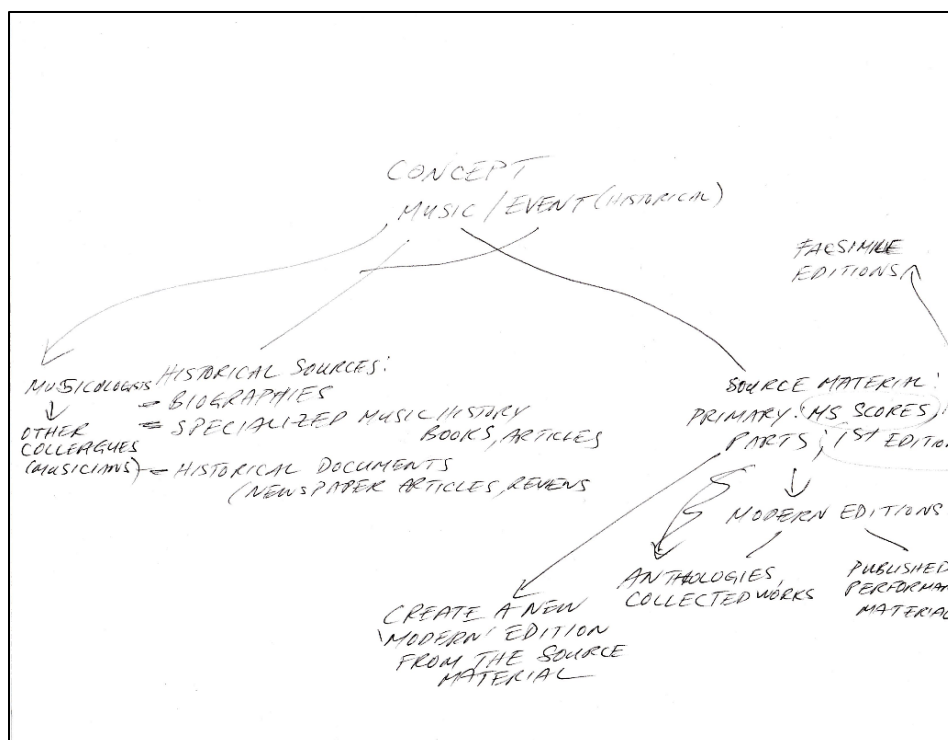 CONCEPT
MUSIC / EVENT (HISTORICAL)
FACSIMILE
EDITIONS
MUSICOLOGISTS
OTHER
COLLEAGUES
(MUSICIANS)
HISTORICAL SOURCES:
- BIOGRAPHIES
- SPECIALIZED MUSIC HISTORY
BOOKS, ARTICLES
- HISTORICAL DOCUMENTS
(NEWSPAPER ARTICLES,
SOURCE MATERIAL:
PRIMARY: MS SCORES,
PARTS, 1ST EDITION
MODERN EDITIONS
ANTHOLOGIES,
COLLECTED WORKS
PUBLISHED
PERFORMAN
MATERIAL
CREATE A NEW
'MODERN' EDITION
FROM THE SOURCE
MATERIAL